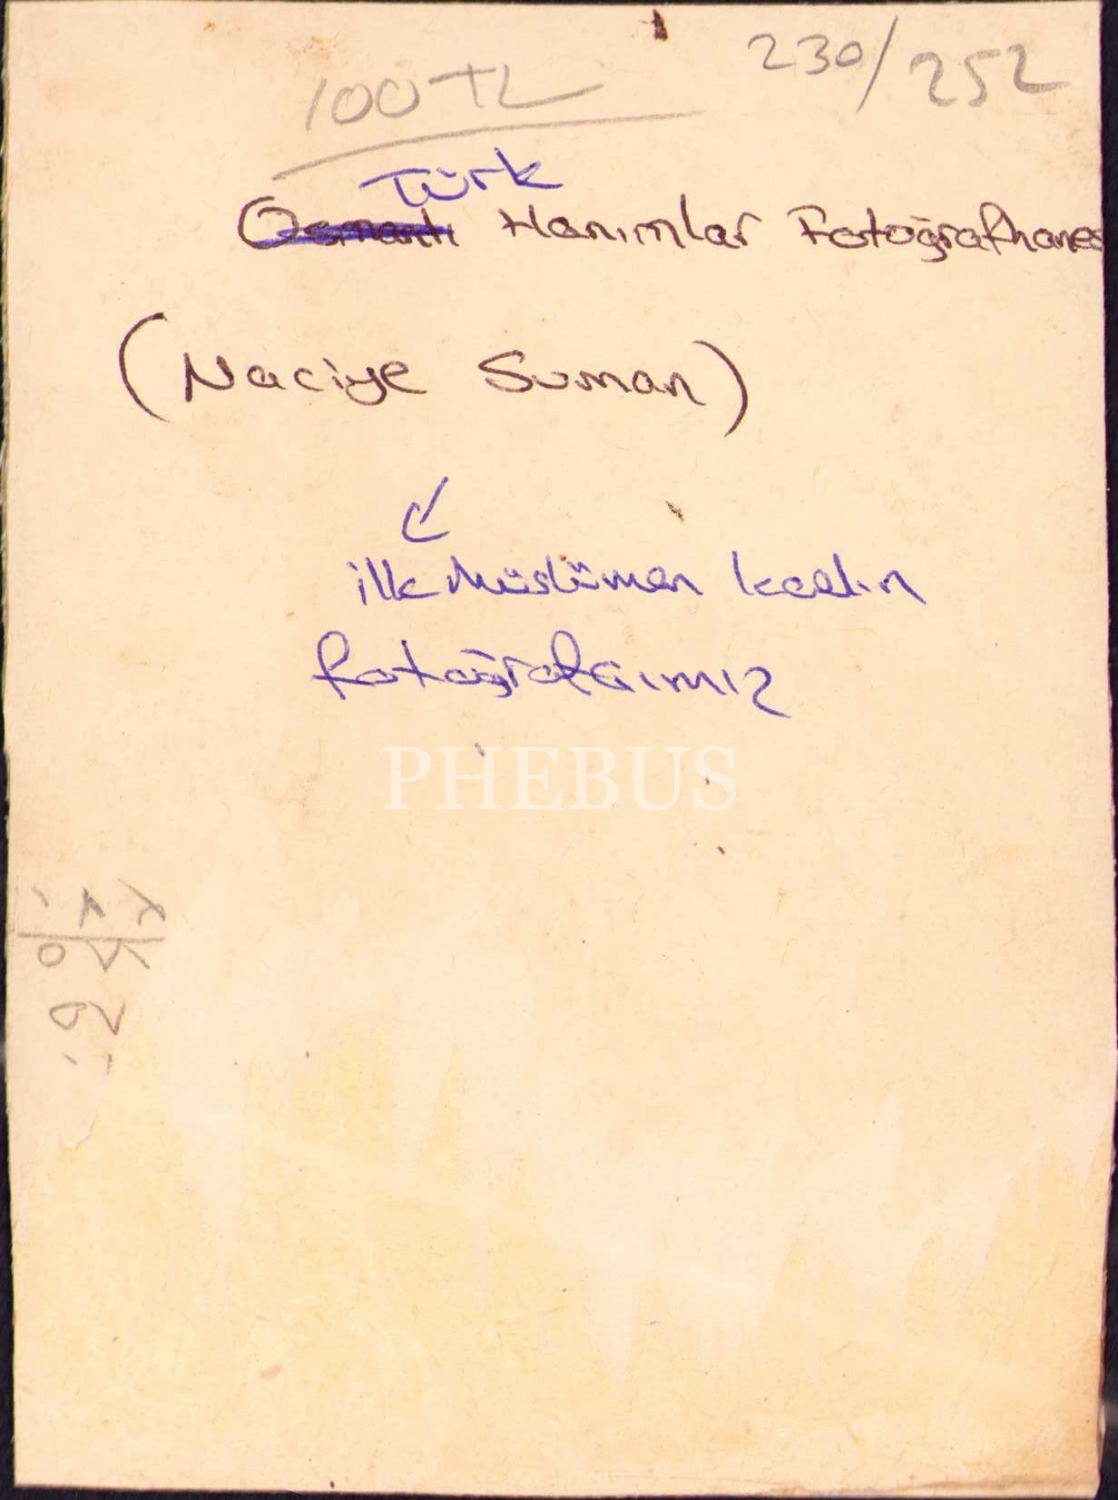 230/252
100 TL
Türk
Osmanlı Hanımlar Fotoğrafhanes
(Naciye Suman)
ilk Müslüman kadın
fotoğrafcımız
PHEBUS